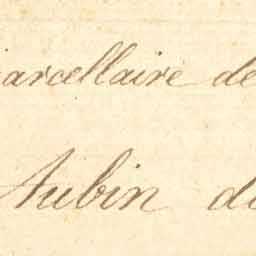 parcellaire de
Aubin de